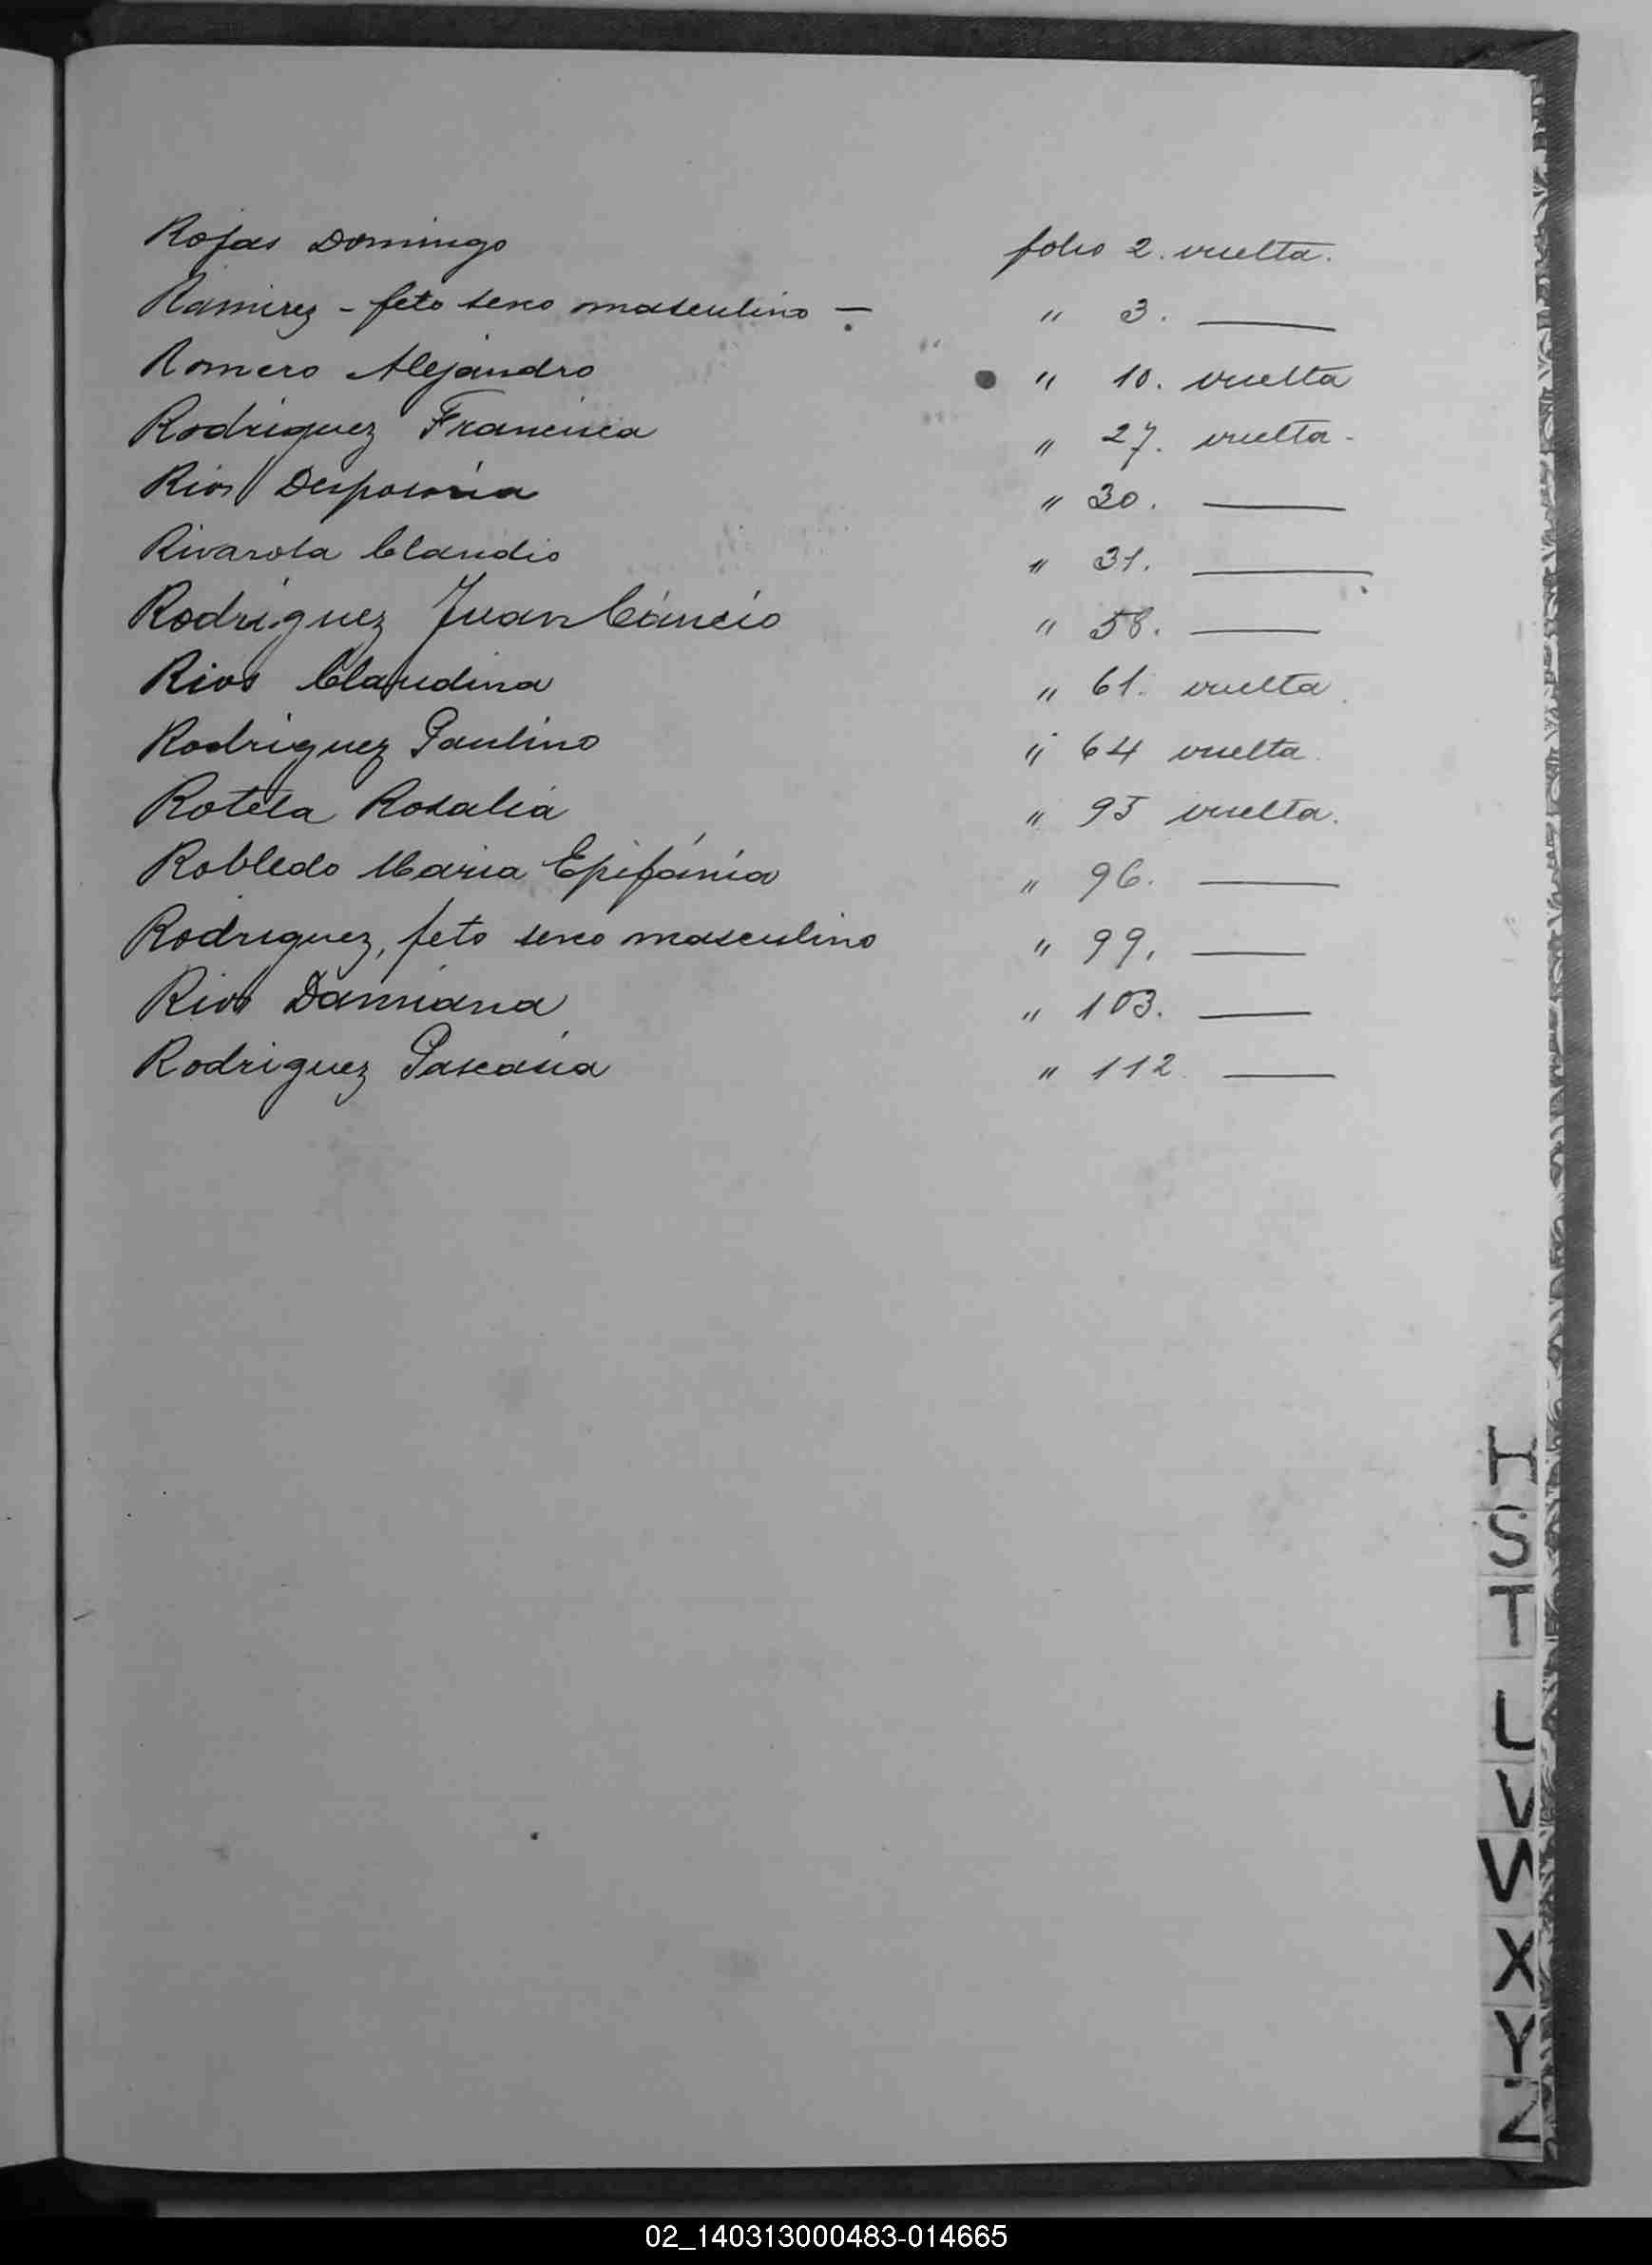 Rojas Domingo folio 2. vuelta.
Ramirez - feto sexo masculino - " 3. ———
Romero Alejandro " 10. vuelta
Rodriguez Francisca " 27. vuelta -
Rios Desposoria " 30. ———
Rivarola Claudio " 31. ———
Rodriguez Juan Cáncio " 58. ———
Rios Claudina " 61. vuelta.
Rodriguez Paulino " 64 vuelta.
Rotela Rosalia " 95 vuelta.
Robledo Maria Epifánia " 96. ———
Rodriguez, feto sexo masculino " 99. ———
Rios Damiana " 103. ———
Rodriguez Pascasia " 112 ———
S
T
U
V
W
X
Y
Z
02_140313000483-014665